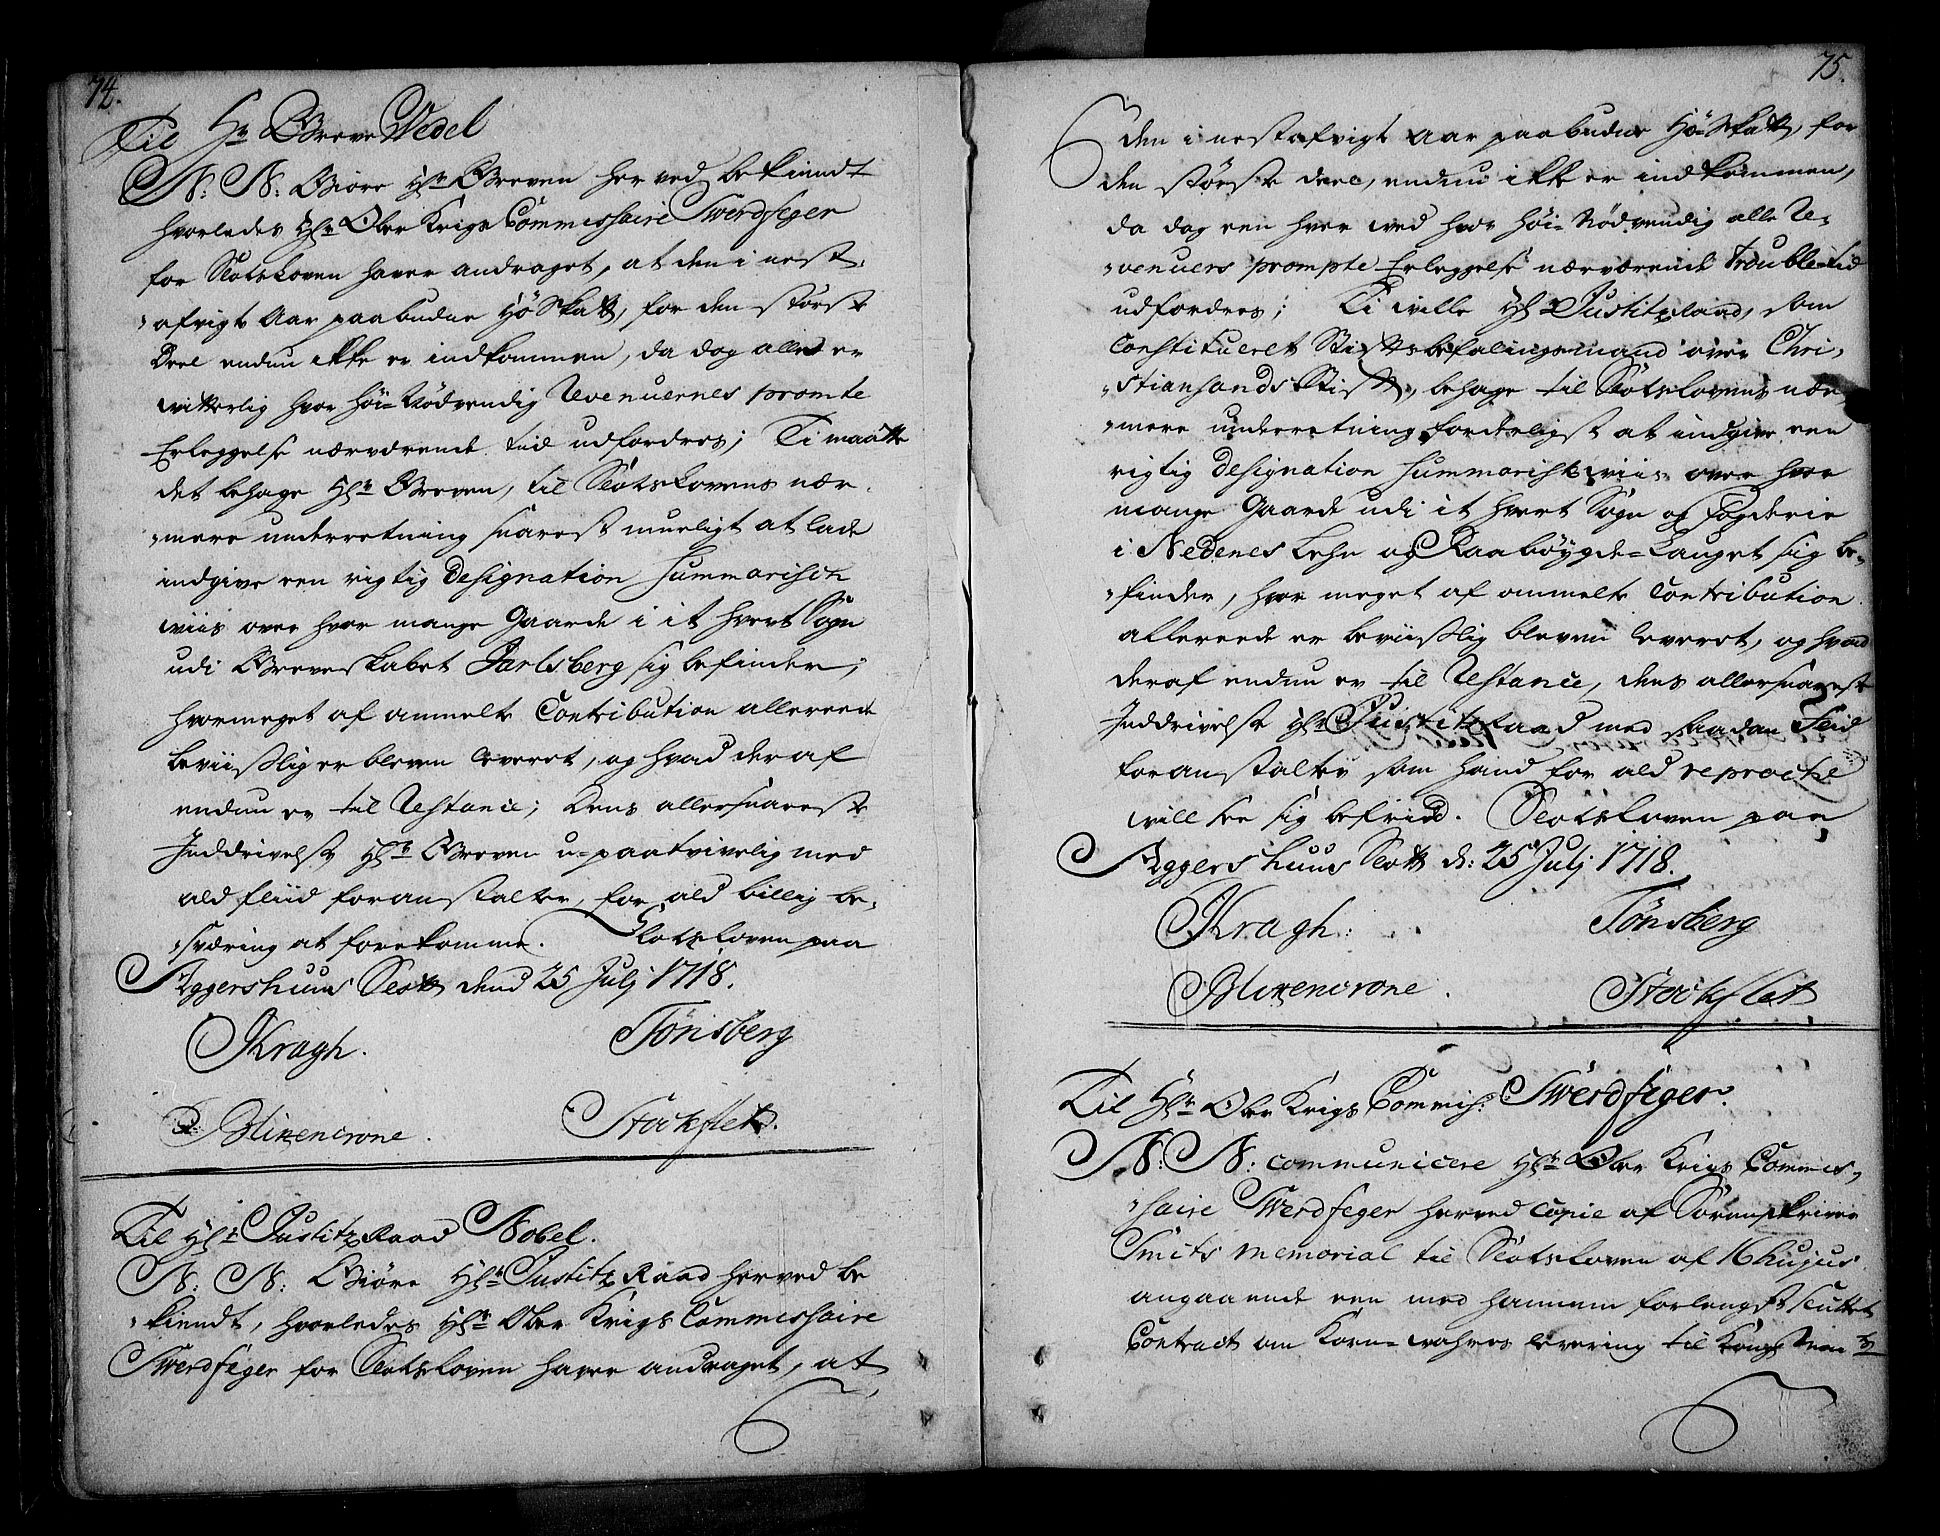 74.
Til Hr Greve Wedel
N: N: Giöre Hr: Greven her ved bekiendt
hvorledes Hr: Ober Krigs Commissaire Swerdfeger
for Slotsloven haver andraget, at den i nest-
afvigt Aar paabudne HöSkatt, for den störst
Deel endnu ikke er indkommen, da dog alles er
witterlig hvor höi-Nödvendig Revenuernes promte
Erleggelse nærværende tid udfordres; Ti maatte
det behage Hr: Greven, til Slotslovens nær-
mere underretning snarest mueligt at lade
indgive een rigtig Designation Summarisch
wiis over hvor mange Gaarde i it hvert Sogn
udi Greveskabet Jarlsberg sig befinder,
hvormeget af anmelte Contribution allereede
beviislig er bleven leveret, og hvad deraf
endnu er til Restance; Dens allersnareste
Inddrivelse Hr: Greven u-paatvivelig med
ald fliid foranstalter, for ald billig be-
sværing at forekomme. Slotsloven paa
Aggershuus Slott dend 25 Julj 1718.
Kragh. Tönsberg
Blixencrone. Stockflet.
Til Hr: Justitz Raad Nobel.
N: N: Giöre Hr: Justitz Raad herved be
kiendt, hvorledes Hr: Ober Krigs Commissaire
Swerdfeger for Slotsloven haver andraget, at
75.
den i nestafvigt Aar paabudne Hö-Skatt, for
den störste deel, endnu ikke er indkommen,
da dog een hver ved hvor höi-Nödvendig alle Re-
venuers prompte Erleggelse nærværende trouble-tid
udfordres; Ti wille Hr: Justitz Raad, som
Constitueret Stiftsbefalingsmand over Chri-
stiansands Stift, behage til Slotslovens nær
mere underretning forderligst at indgive een
rigtig Designation Summarisk wiis over hvor
mange Gaarde udi it hvert Sogn og fogderie
i Nedenes Lehn og Raabÿgde-Lauget sig be-
finder, hvor meget af anmelte Contribution
allereede er beviislig bleven leveret, og hvad
deraf endnu er til Restance, dens allersnareste
Inddrivelse Hr: Justitz Raad med saadan Fliid
foranstalter som hand for ald reproche
vill see sig befriid. Slotsloven paa
Aggershuus Slott d: 25 Julj 1718.
Kragh: Tönsberg
Blixencrone. Stockflet
Til Hr: Ober Krigs Commiss: Swerdfeger.
N: N: communicere Hr: Ober Krigs Commis-
saire Swerdfeger herved Copie af Sorenskriver
Smits Memorial til Slotsloven af 16 hujus
angaaende een med hannem forlengst sluttet
Contract om Korn-wahres levering til